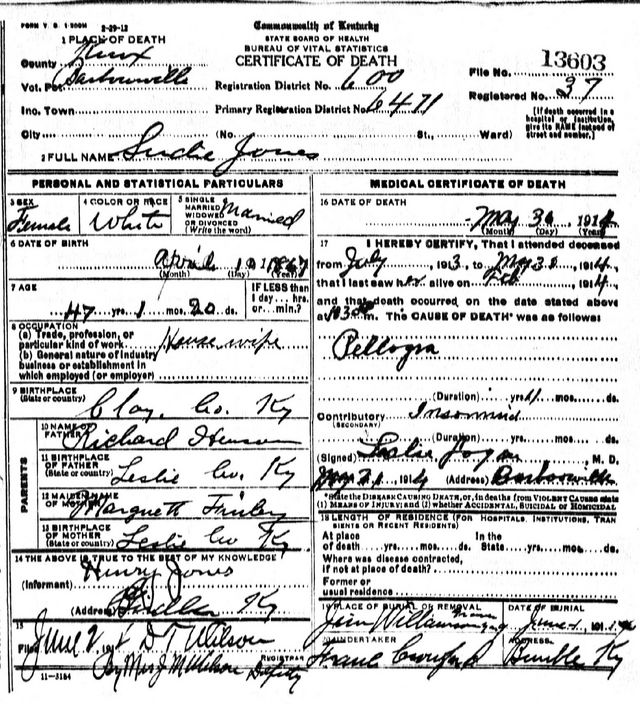 FORM V. S. 1-500M 2-29-12
Commonwealth of Kentucky
STATE BOARD OF HEALTH
BUREAU OF VITAL STATISTICS
CERTIFICATE OF DEATH
1 PLACE OF DEATH
County Knox
Vot. Pct. Barbourville
Inc. Town
City (No. St., Ward)
Registration District No. 600
Primary Registration District No. 6471
File No. 13603
Registered No. 37
[If death occurred in a
hospital or institution,
give its NAME instead of
street and number.]
2 FULL NAME Jones
PERSONAL AND STATISTICAL PARTICULARS
3 SEX Female
4 COLOR OR RACE White
5 SINGLE
MARRIED
WIDOWED
OR DIVORCED
(Write the word)
Married
6 DATE OF BIRTH
April 10 1867
(Month) (Day) (Year)
7 AGE
47 yrs. 1 mos. 20 ds.
IF LESS than
1 day... hrs.
or... min.?
8 OCCUPATION
(a) Trade, profession, or
particular kind of work House wife
(b) General nature of industry
business or establishment in
which employed (or employer)
9 BIRTHPLACE
(State or country) Clay Co. Ky
PARENTS
10 NAME OF
FATHER Richard
11 BIRTHPLACE
OF FATHER
(State or country) Leslie Co. Ky
12 MAIDEN NAME
OF MOTHER Finley
13 BIRTHPLACE
OF MOTHER
(State or country) Leslie Co Ky
14 THE ABOVE IS TRUE TO THE BEST OF MY KNOWLEDGE
(Informant) Henry Jones
(Address) Ky
15
Filed June 2 191 D T Wilson
REGISTRAR
By Mrs J M Wilson Deputy
11-3184
MEDICAL CERTIFICATE OF DEATH
16 DATE OF DEATH
May 30, 1914
(Month) (Day) (Year)
17 I HEREBY CERTIFY, That I attended deceased
from July 1913, to May 30, 1914,
that I last saw her alive on Feb, 1914,
and that death occurred on the date stated above
at m. The CAUSE OF DEATH* was as follows:
Pellogra
(Duration) yrs. mos. ds.
Contributory Insomnia
(SECONDARY)
(Duration) yrs. mos. ds.
(Signed) Leslie Logan M. D.
1914 (Address) Barbourville
*State the DISEASE CAUSING DEATH, or, in deaths from VIOLENT CAUSES state
(1) MEANS OF INJURY; and (2) whether ACCIDENTAL, SUICIDAL or HOMICIDAL
18 LENGTH OF RESIDENCE (FOR HOSPITALS, INSTITUTIONS, TRAN
SIENTS OR RECENT RESIDENTS)
At place In the
of death yrs. mos. ds. State yrs. mos. ds.
Where was disease contracted,
if not at place of death?
Former or
usual residence
19 PLACE OF BURIAL OR REMOVAL
Jim Williamson
DATE OF BURIAL
June 1, 191
20 UNDERTAKER
ADDRESS
Bimble Ky